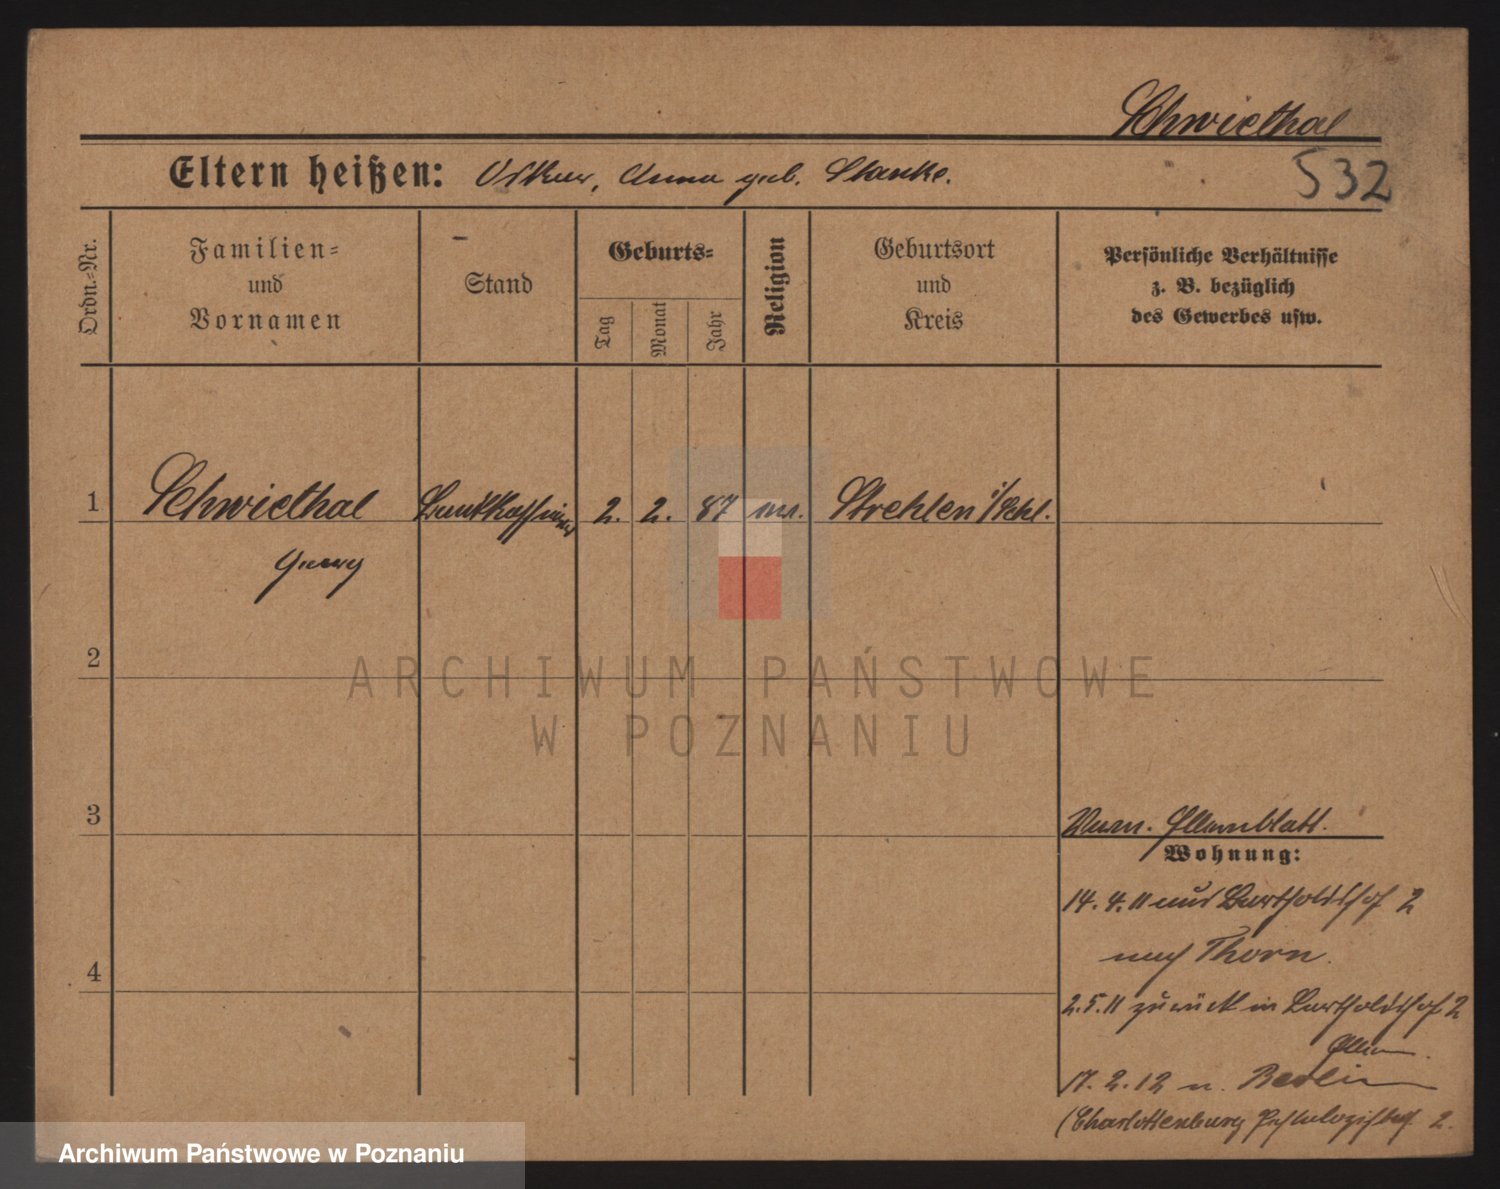 Schwiethal
Eltern heißen: Oskar, Anna geb. Stanke.
532
Ordn.-Nr.
Familien-
und
Vornamen
Stand
Geburts-
Tag
Monat
Jahr
Religion
Geburtsort
und
Kreis
Persönliche Verhältnisse
z. B. bezüglich
des Gewerbes usw.
1 Schwiethal 2. 2. 87 Strehlen i/Schl.
Georg
2
ARCHIWUM PAŃSTWOWE
W POZNANIU
3
Elternblatt.
Wohnung:
14. 4. 11 aus Bartholdshof 2
nach Thorn.
4
2. 5. 11 zurück in Bartholdshof 2
Eltern.
17. 2. 12 n. Berlin
(Charlottenburg 2.
Archiwum Państwowe w Poznaniu